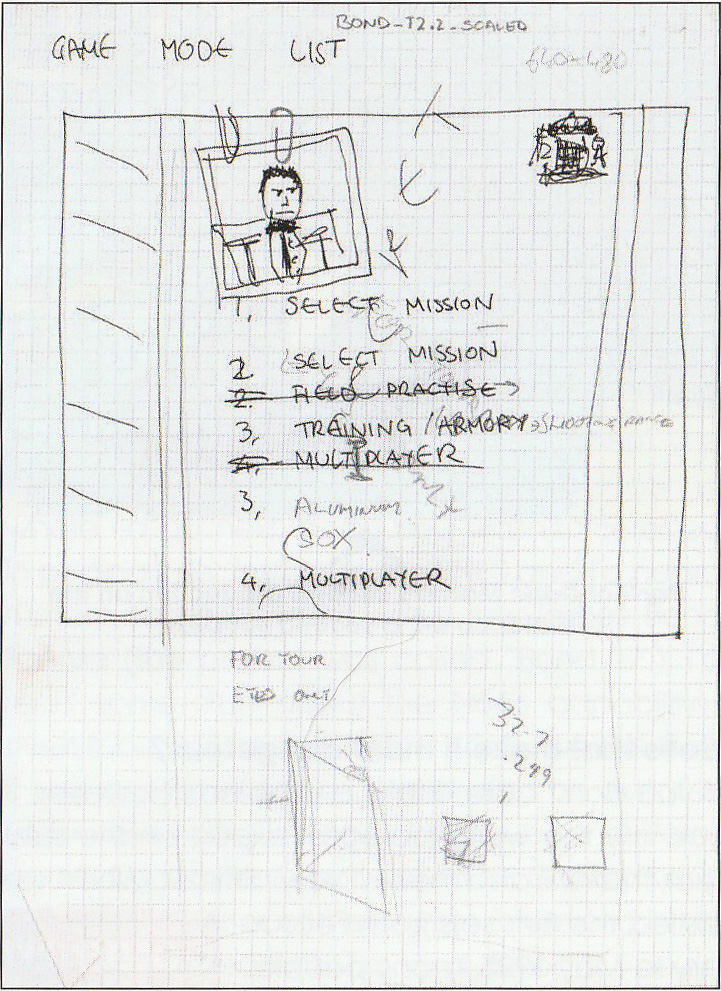 BOND-T2.2-SCALED
GAME MODE LIST
640-480
1, SELECT MISSION
2 SELECT MISSION
2. FIELD PRACTISE
3, TRAINING / ARMORY SHOOTING RANGE
4. MULTIPLAYER
3, ALUMINUM
SOX
4, MULTIPLAYER
FOR YOUR
EYES ONLY
32.7
.299